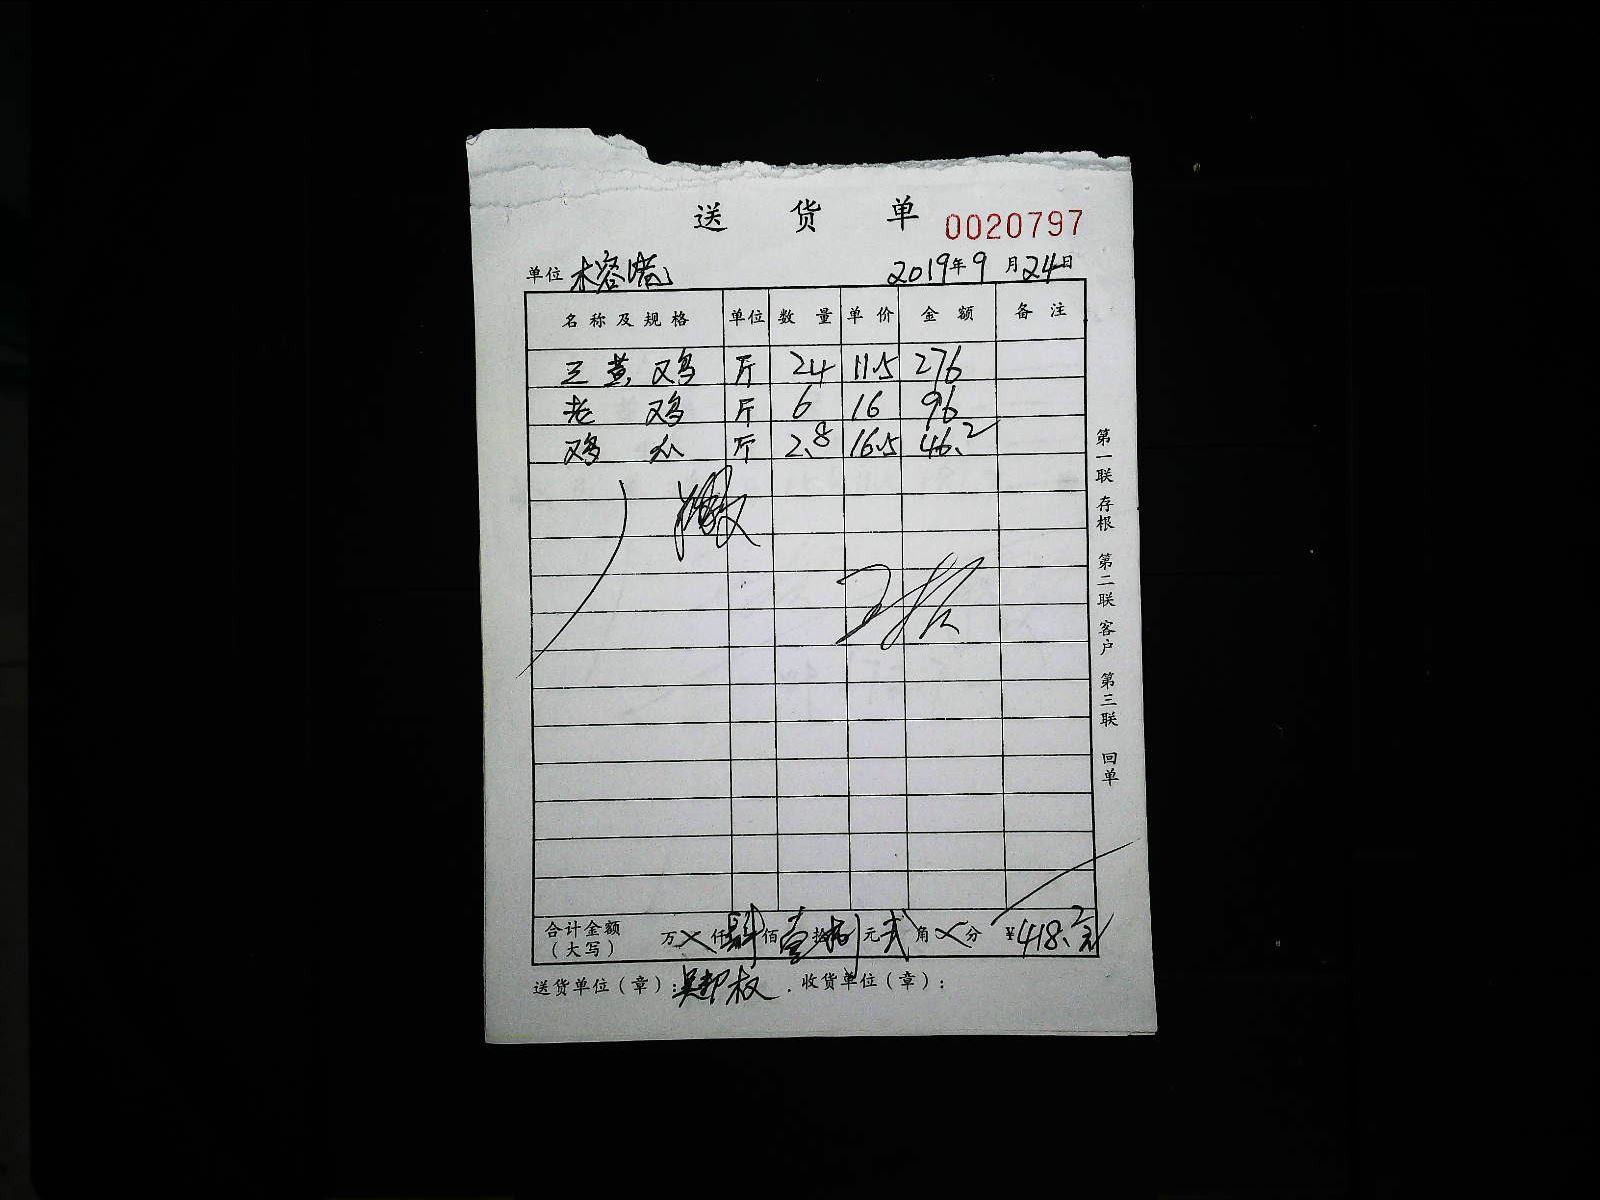 送 货 单 0020797
单位 木容塘 2019年9月24日
名称及规格 单位 数量 单价 金额 备注
三黄鸡 斤 24 11.5 276
老鸡 斤 6 16 96
鸡 斤 2.8 16.5 46.2
第一联 存根 第二联 客户 第三联 回单
合计金额 万 仟 肆 佰 壹 拾 捌 元 贰 角 分 ¥418.2元
(大写)
送货单位(章): 吴 权 收货单位(章):